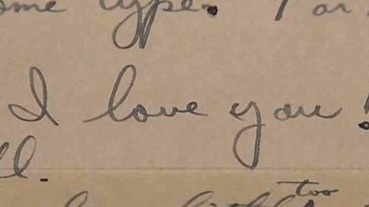 ome type. For
I love you!
ll.
too